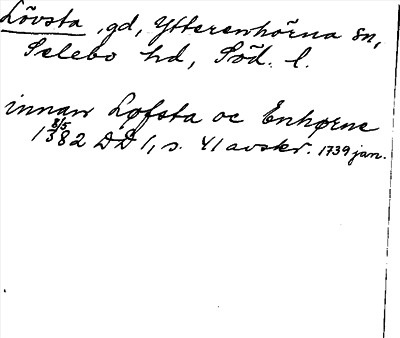 Lövsta, gd, Ytterenhörna sn,
Selebo hd, Söd. l.
innan Løfsta oc Enhørne
8/5
1382 DD 1, s. 41 avskr. 1739 jan.